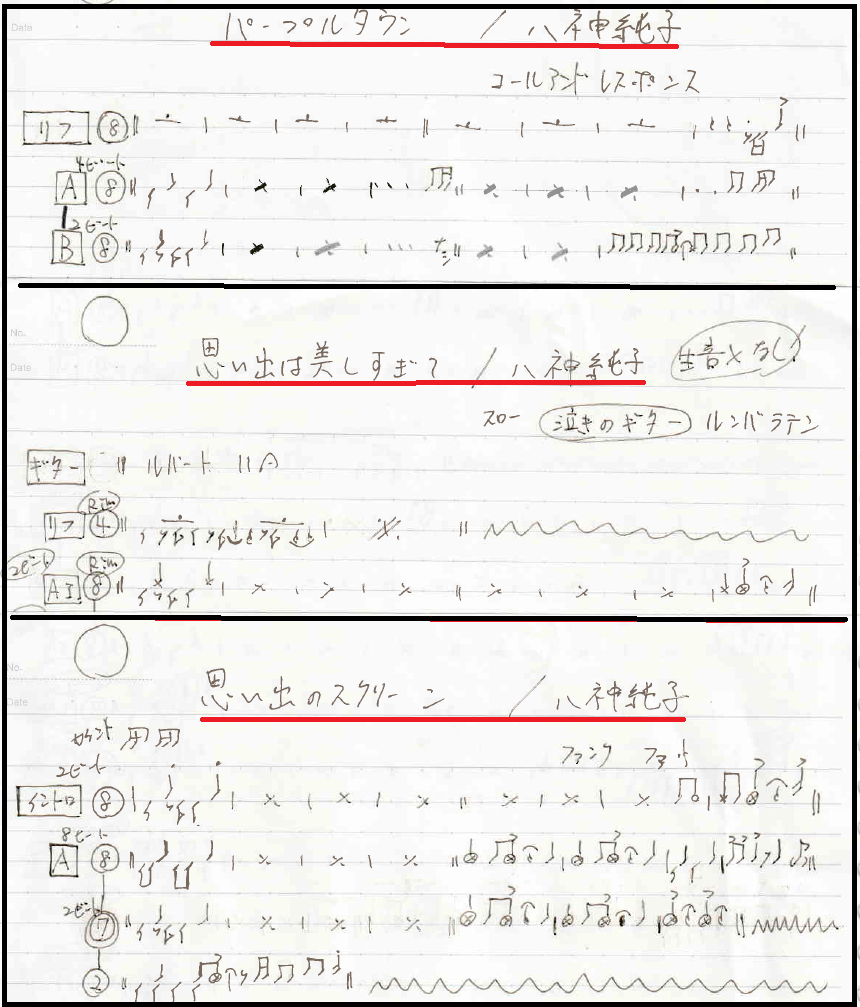 Date
パープルタウン / 八神純子
コールアンドレスポンス
リフ ⑧ 3 皆
4ビート
A ⑧
2ビート
B ⑧
No.
Date
思い出は美しすぎて / 八神純子 生音×なし!
スロー 泣きのギター ルンバラテン
ギター ルバート
Rim
リフ ④
2ビート Rim
AI ⑧ 3
No.
Date
思い出のスクリーン / 八神純子
カウント
2ビート ファンク
イントロ ⑧ 3 3
8ビート
A ⑧ 3 3 3 3
2ビート
⑦ 3 3 3 3
②